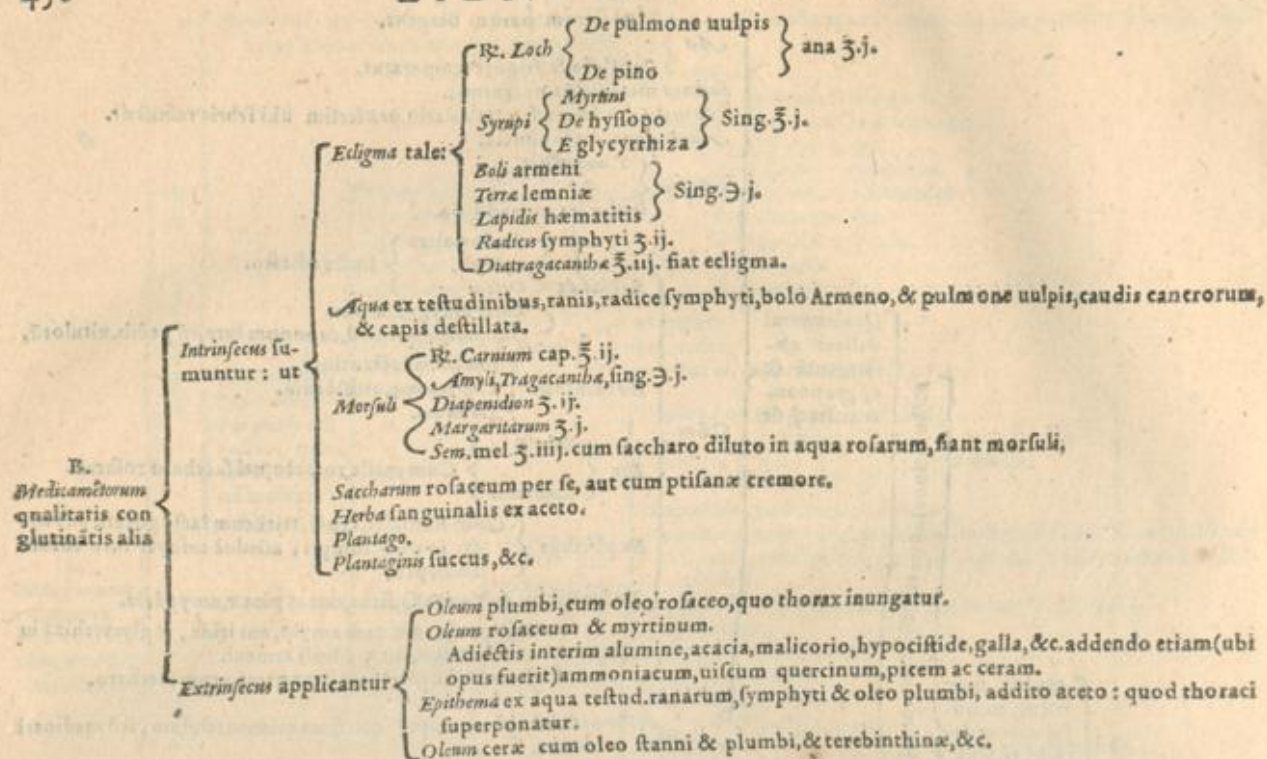 ℞. Loch
De pulmone uulpis
De pino
ana ʒ.j.
Syrupi
Myrtini
De hyſſopo
E glycyrrhiza
Sing.℥.j.
Ecligma tale:
Boli armeni
Terræ lemniæ
Lapidis hæmatitis
Sing.℈.j.
Radicis ſymphyti ʒ.ij.
Diatragacanthæ ℥.iij. fiat ecligma.
Aqua ex teſtudinibus, ranis, radice ſymphyti, bolo Armeno, & pulmone uulpis, caudis cancrorum,
& capis deſtillata.
Intrinſecus ſu-
muntur : ut
Morſuli
℞. Carnium cap. ℥.ij.
Amyli, Tragacanthæ, ſing.℈.j.
Diapenidion ʒ.ij.
Margaritarum ʒ.j.
Sem. mel ʒ.iij. cum ſaccharo diluto in aqua roſarum, fiant morſuli.
Saccharum roſaceum per ſe, aut cum ptiſanæ cremore.
Herba ſanguinalis ex aceto.
Plantago.
Plantaginis ſuccus, &c.
B.
Medicamētorum
qualitatis con
glutinātis alia
Oleum plumbi, cum oleo roſaceo, quo thorax inungatur.
Oleum roſaceum & myrtinum.
Adiectis interim alumine, acacia, malicorio, hypociſtide, galla, &c. addendo etiam (ubi
opus fuerit) ammoniacum, uiſcum quercinum, picem ac ceram.
Extrinſecus applicantur
Epithema ex aqua teſtud. ranarum, ſymphyti & oleo plumbi, addito aceto : quod thoraci
ſuperponatur.
Oleum ceræ cum oleo ſtanni & plumbi, & terebinthinæ, &c.